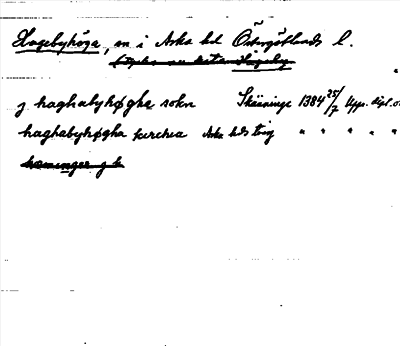 Hagebyhöga, sn i Aska hd Östergötlands l.
j haghabyhøgha sokn Skäninge 1384 25/7 Upps. dipl. o
haghabyhøgha kirchia Aska hds ting " " " " "